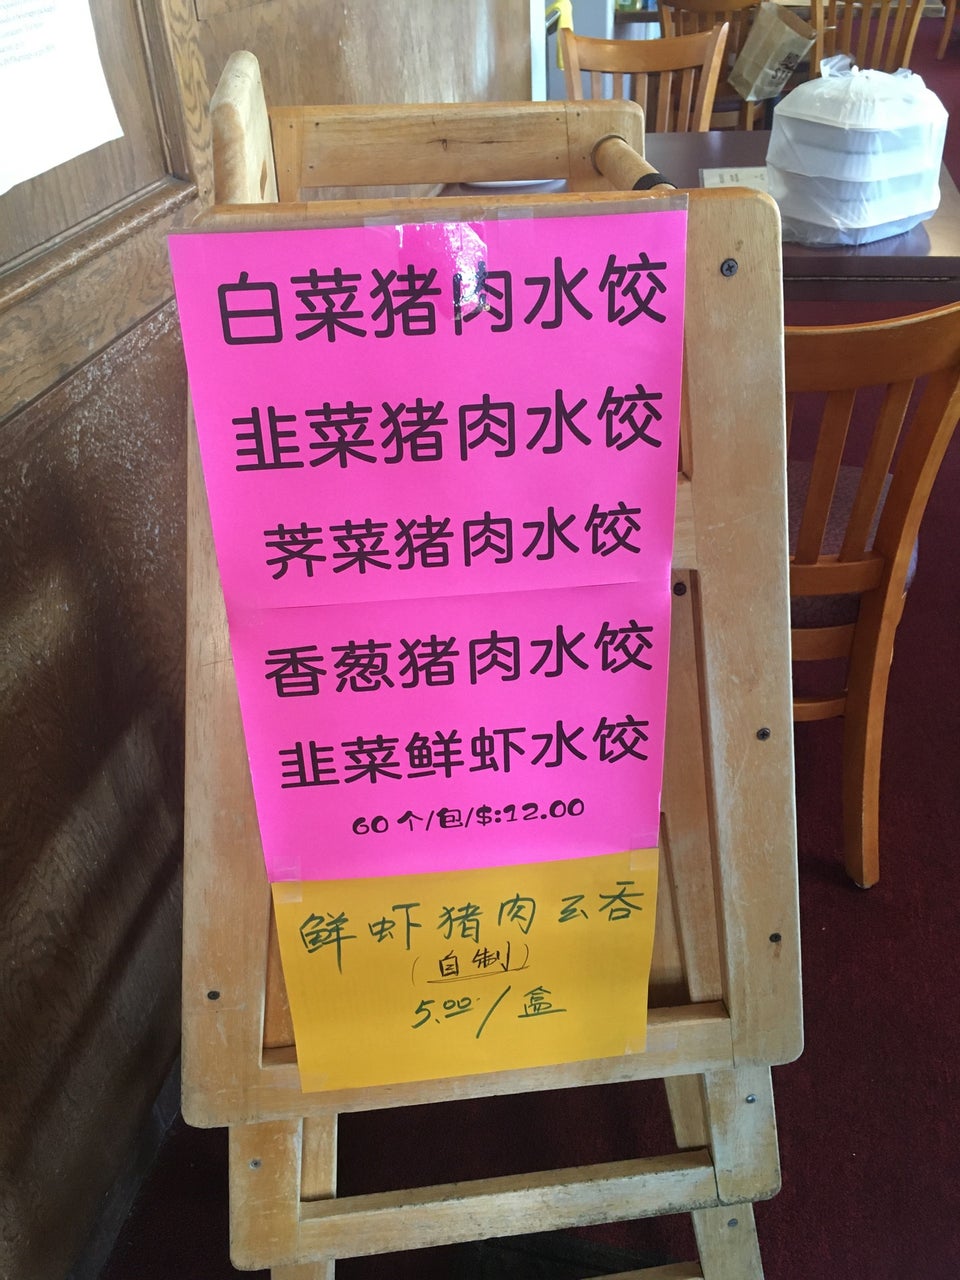 白菜猪肉水饺
韭菜猪肉水饺
荠菜猪肉水饺
香葱猪肉水饺
韭菜鲜虾水饺
60个/包/$:12.00
鲜虾猪肉云吞
(自制)
5.00/盒